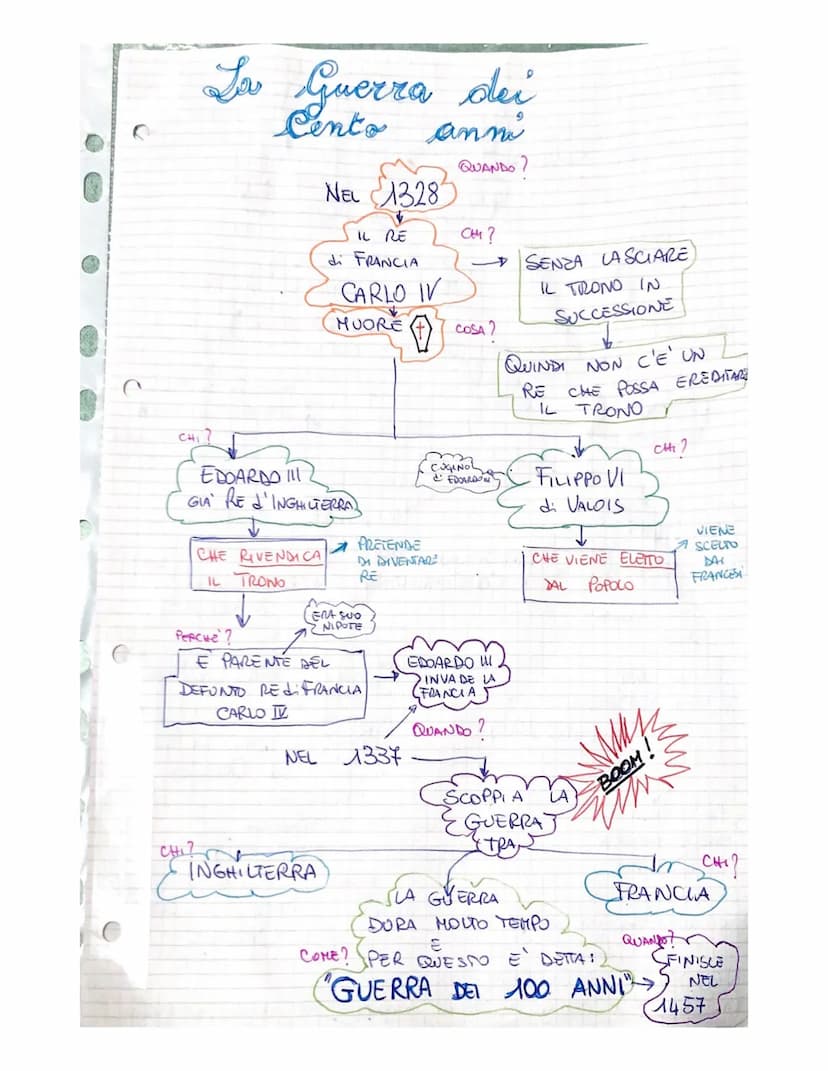 La Guerra dei
Cento anni
QUANDO?
NEL 1328
IL RE
di FRANCIA
CARLO IV
CHI?
MUORE
COSA?
SENZA LASCIARE
IL TRONO IN
SUCCESSIONE
QUINDI NON C'E' UN
RE CHE POSSA EREDITARE
IL TRONO
CHI?
EDOARDO III
GIÀ RE d'INGHILTERRA
CHE RIVENDICA
IL TRONO
PRETENDE
DI DIVENTARE
RE
CHI?
CUGINO
di EDOARDO III
FILIPPO VI
di VALOIS
CHE VIENE ELETTO
DAL POPOLO
VIENE
SCELTO
DAI
FRANCESI
PERCHÈ?
ERA SUO
NIPOTE
E PARENTE DEL
DEFUNTO RE di FRANCIA
CARLO IV
EDOARDO III
INVADE LA
FRANCIA
QUANDO?
NEL 1337
SCOPPIA LA
GUERRA
TRA
BOOM!
CHI?
INGHILTERRA
CHI?
FRANCIA
COME?
LA GUERRA
DURA MOLTO TEMPO
E
PER QUESTO E' DETTA:
"GUERRA DEI 100 ANNI"
QUANDO?
FINISCE
NEL
1457